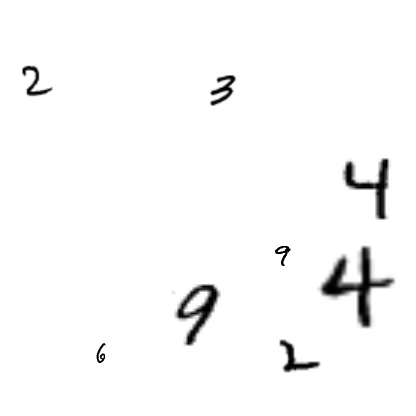 2 3
4
9 4
9
6 2